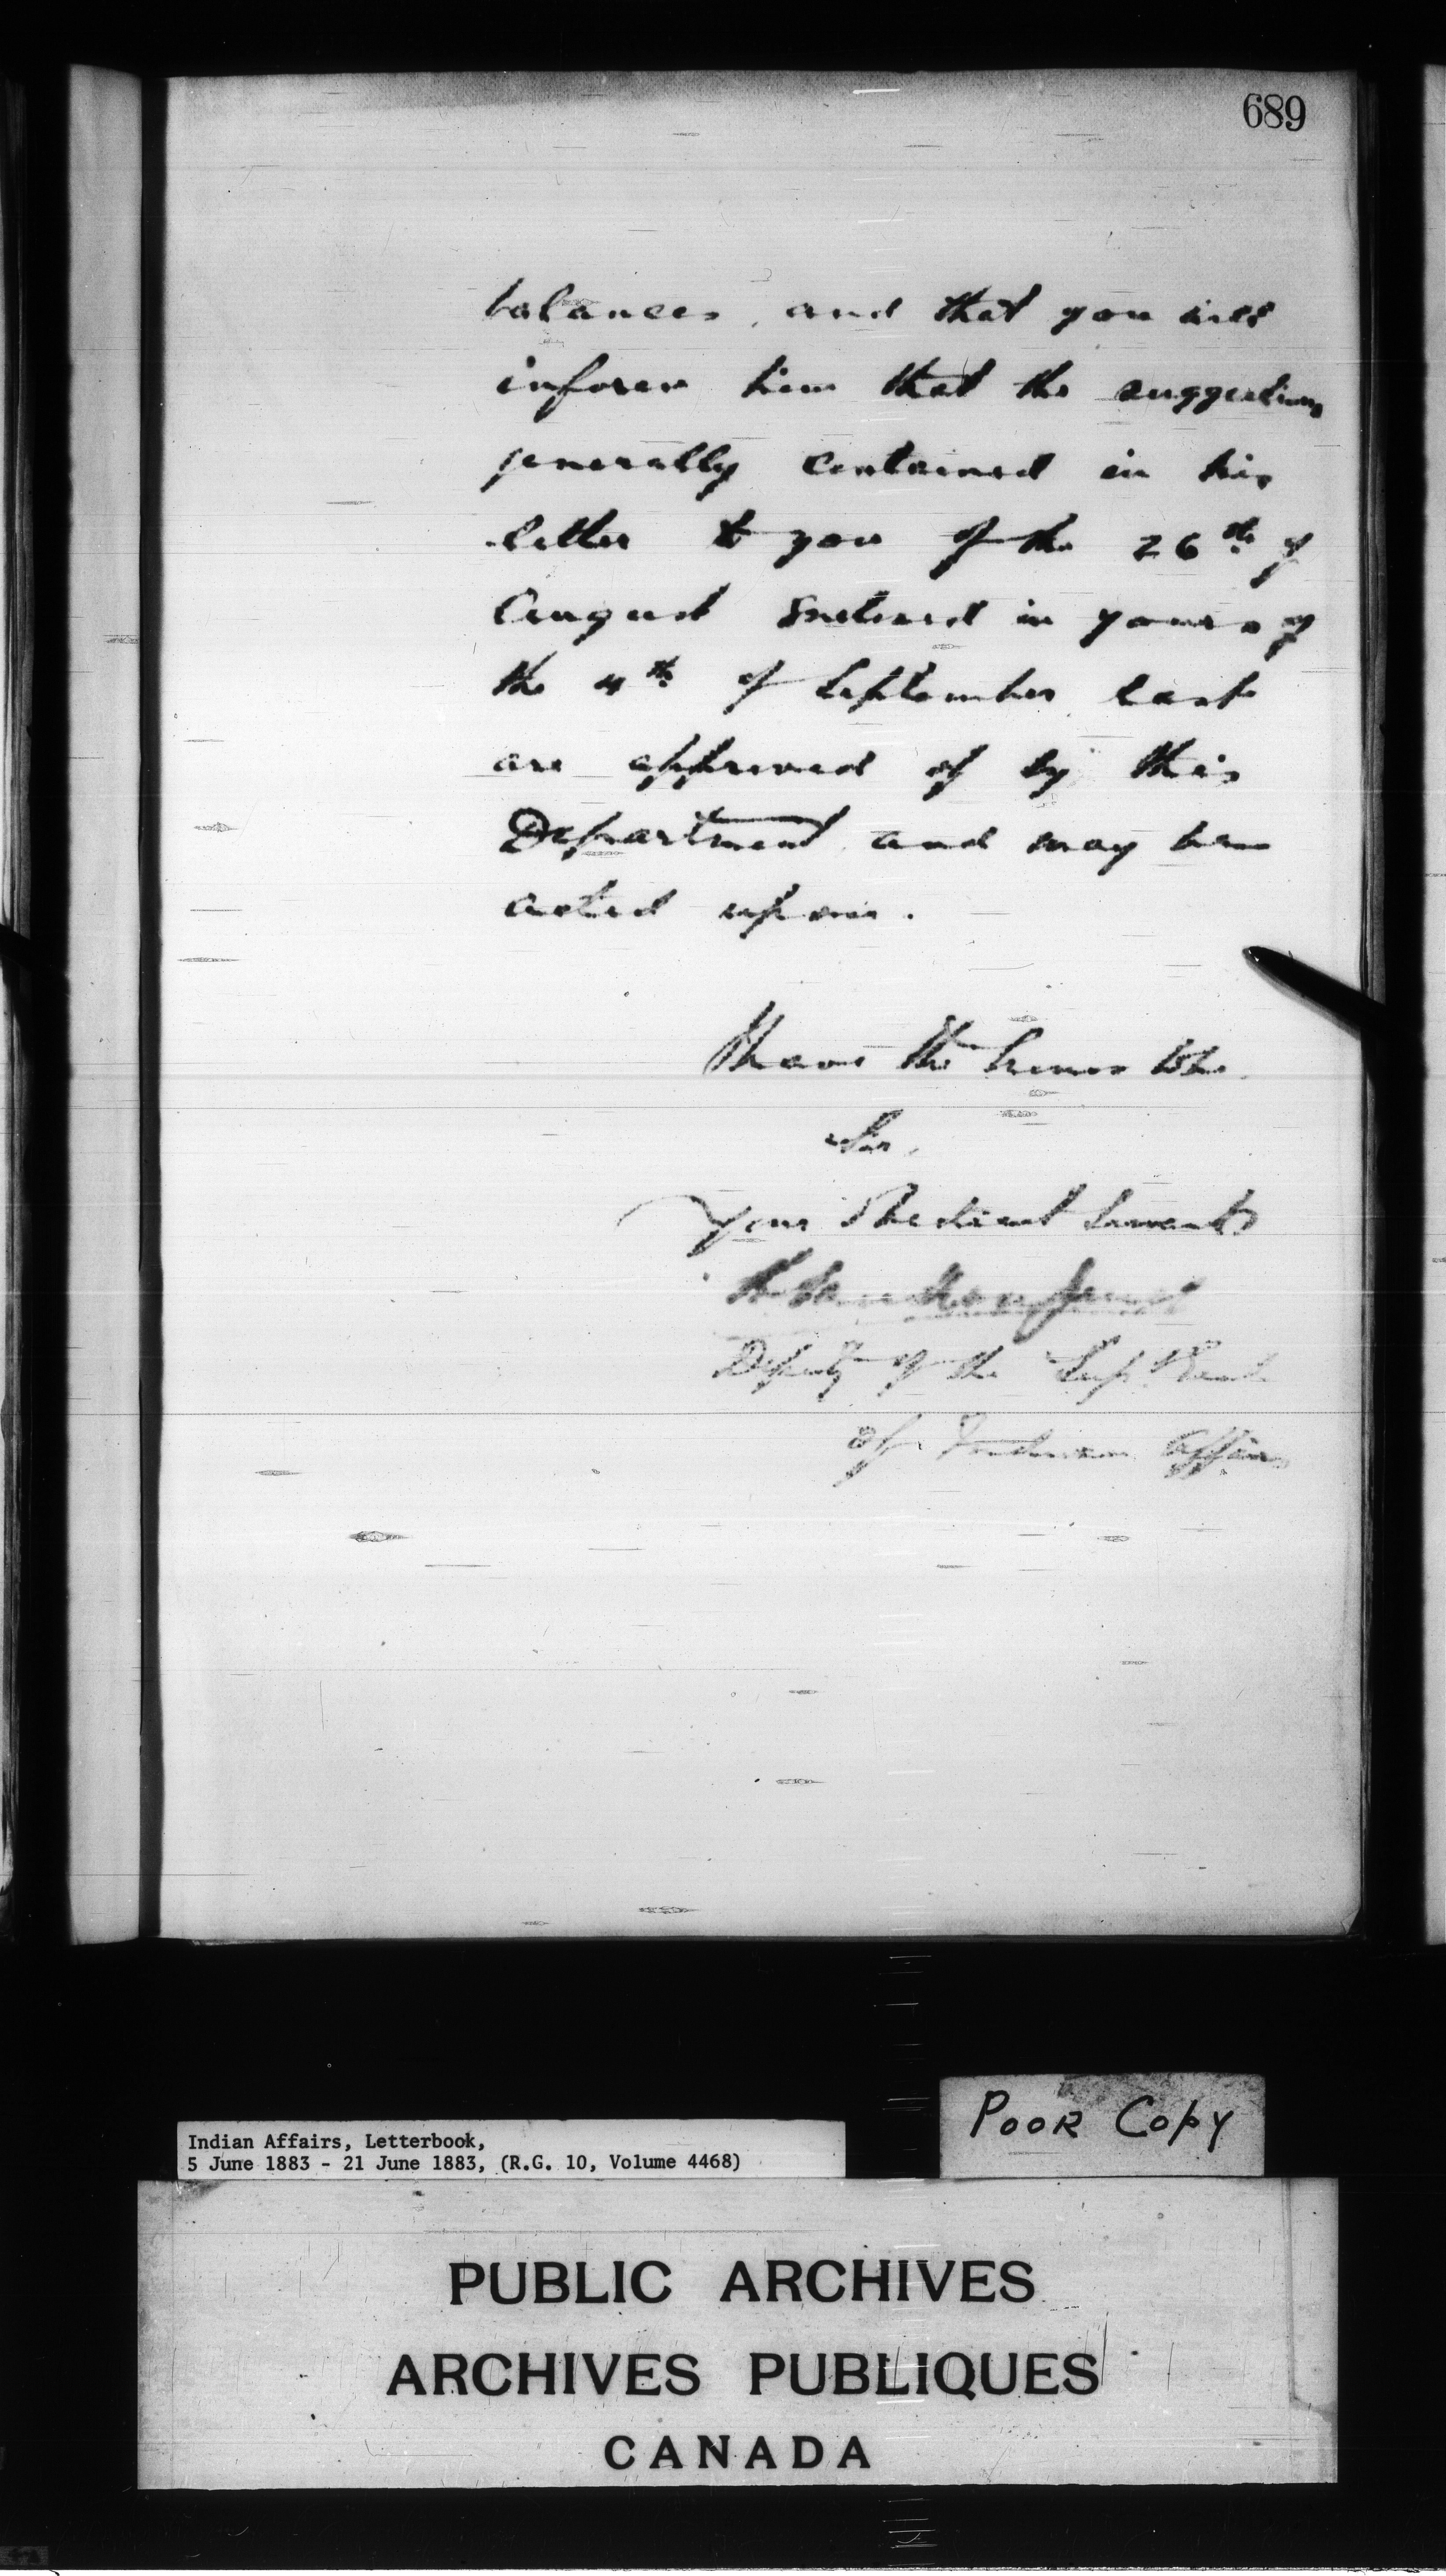 689
balances, and that you will
inform him that the suggestions
generally contained in his
letter to you of the 26th of
August Enclosed in yours of
the 4th of September last
are approved of by this
Department and may be
acted upon.
I have the honor to be
Sir,
Your Obedient Servant
Deputy of the Supt Genl
of Indian Affairs
POOR COPY
Indian Affairs, Letterbook,
5 June 1883 - 21 June 1883, (R.G. 10, Volume 4468)
PUBLIC ARCHIVES
ARCHIVES PUBLIQUES
CANADA